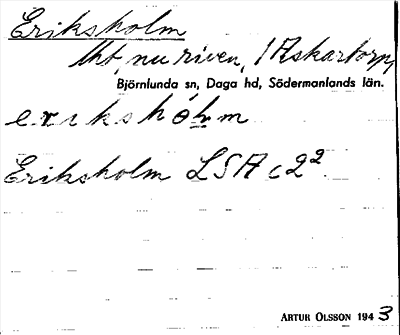 Eriksholm
lht, nu riven, / Askartorp,
Björnlunda sn, Daga hd, Södermanlands län.
erikshòlm
Eriksholm LSA c2²
ARTUR OLSSON 1943